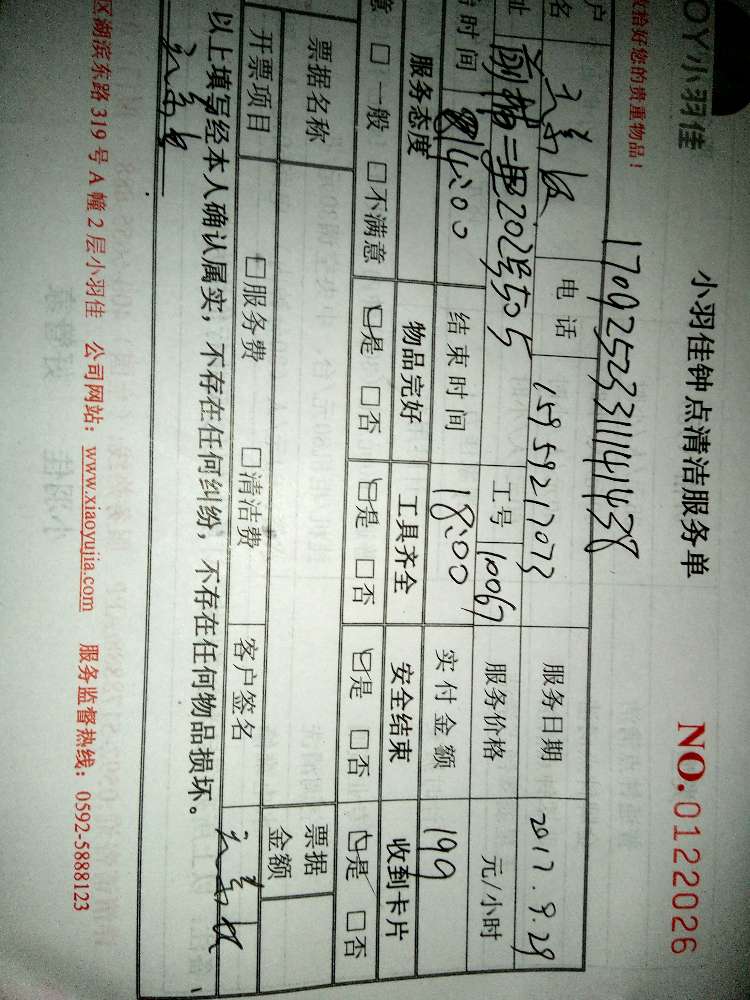 OY小羽佳
小羽佳钟点清洁服务单
NO.0122026
收拾好您的贵重物品!
1709252331141438
户名 电话 15959217073 服务日期 2017.9.29
址 前埔二里202号505 工号 10067 服务价格 元/小时
时间 14:00 结束时间 18:00 实付金额 199
服务态度 物品完好 工具齐全 安全结束 收到卡片
意 □一般 □不满意 □是 □否 □是 □否 □是 □否 □是 □否
票据名称 票据金额
开票项目 □服务费 □清洁费 客户签名
以上填写经本人确认属实,不存在任何纠纷,不存在任何物品损坏。
区湖滨东路319号A幢2层小羽佳 公司网站:www.xiaoyujia.com 服务监督热线:0592-5888123